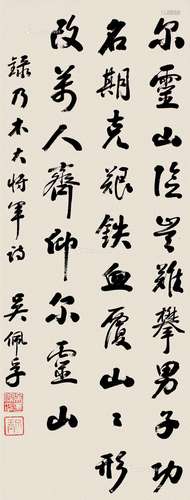 尔靈山險豈難攀男子功
名期克艱鐵血覆山〻形
改萬人齊仰尔靈山
錄乃木大將軍詩
吳佩孚